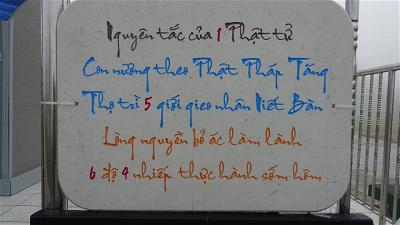 Nguyên tắc của 1 Phật tử
Con nương theo Phật Pháp Tăng
Thọ trì 5 giới gieo nhân Niết Bàn
Lòng nguyền bỏ ác làm lành
6 độ 4 nhiếp thực hành sớm hôm